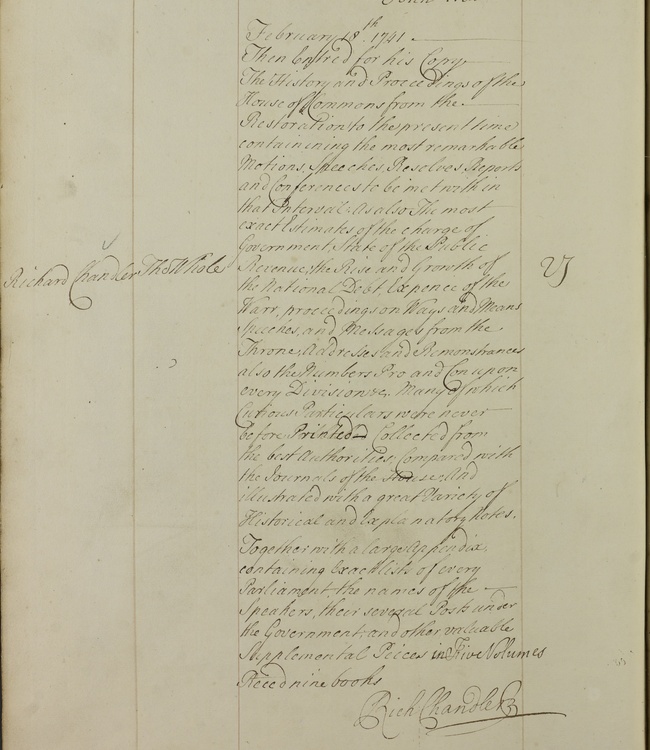 February 18th. 1741.
Then Entred for his Copy
The History and Proceedings of the
House of Commons from the
Restoration to the present time
containining the most remarkable
Motions, Speeches, Resolves Reports
and Conferences to be met with in
that Interval. As also The most
exact Estimates of the charge of
Government, State of the Public
Richard Chandler The Whole
Revenue, the Rise and Growth of
the National Debt Expence of the
Warr, proceedings on Ways and Means
Speeches, and Messages from the
Throne, Addresses and Remonstrances
also the Numbers Pro and Con upon
every Division &c. Many of which
Curious Particulars were never
before Printed Collected from
the best Authorities, Compared with
the Journals of the House, And
illustrated with a great Variety of
Historical and Explanatory Notes.
Together with a large Appendix,
containing Exact lists of every
Parliament the names of the
Speakers, their several Posts under
the Government and other valuable
Supplemental Peices in Five Volumes
Reced nine books
Rich Chandler